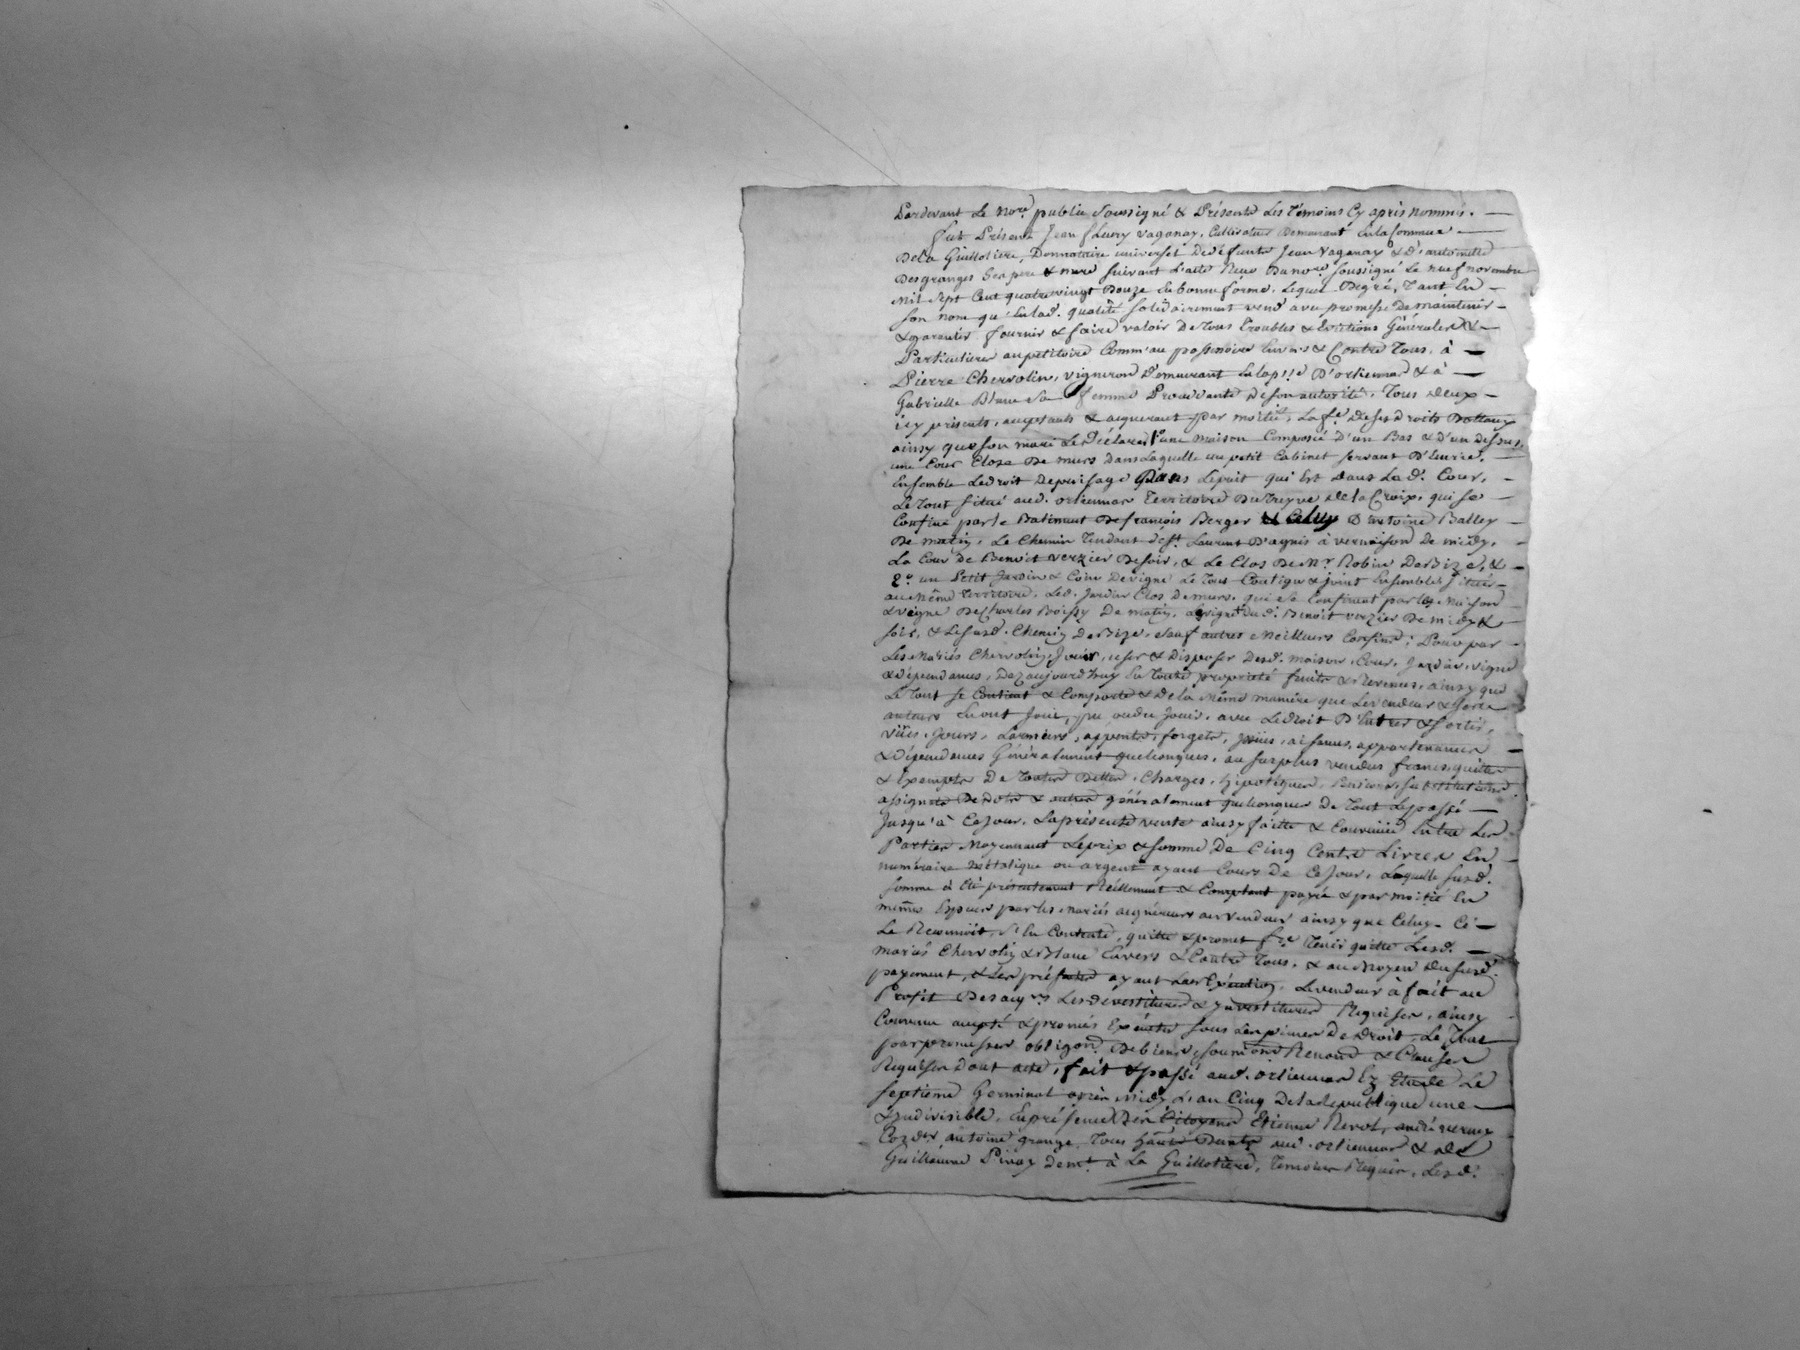 Pardevant Le No.re public Soussigné & Présents Les Témoins Cy après nommés. —
fut Présent Jean fleury vaganay, Cultivateur Demeurant En la Commune —
De la Guillotiere, Donnataire universel De défunts Jean Vaganay & d'antoinette
Desgranges Ses pere & mere suivant L'acte Reçu Du no.re soussigné Le neuf novembre
mil Sept Cent quatrevingt Douze En bonne forme. Lequel Degré, Tant En —
Son nom qu'En lad. qualité solidairement vend avec promesse De maintenir —
& garantir fournir & faire valoir De tous Troubles & Evictions Générales & —
Particulieres au petitoire Comm'au possessoire Envers & Contre Tous, à —
Pierre Chervolin, vigneron Demeurant En la p.sse D'orlienas & à —
Gabrielle Blanc Sa femme Procedante de son autorité, Tous deux —
icy présents, acceptants & acquerant par moitié, La f.e de ses Droits Dottaux
ainsy que son mari Le Déclare 1° une maison Composée d'un Bas & d'un dessus,
une Cour Close De murs dans Laquelle un petit Cabinet servant D'Ecurie. —
Ensemble Le droit De puisage Dans Le puit qui Est dans La d. Cour, —
Le Tout situé aud. orlienas Territoire Du Treyve de la Croix, qui se —
Confine par le Batiment De françois Berger & Celuy D'antoine Balley —
De matin, Le Chemin Tendant de S.t Laurent D'agnis à vernaison de midy, —
La Cour de Benoit verzier De soir, & Le Clos De M.r Robin De Bize, & —
2.° un Petit Jardin & Coin De vigne Le Tout Contigu & joint Ensemble situés —
au même Territoire, Led. Jardin Clos De murs, qui se Confinent par les Maison
& vigne De Charles Boissy De matin, La vigne dud. Benoit verzier De midy &
soir, & Le susd. Chemin De Bize, sauf autres Meilleurs Confins; Pour par —
Les Mariés Chervolin, Jouir, user & Disposer Desd. maison, Cour, Jardin, vigne
& dépendances, Dez aujourd'huy En Toute propriété fruits & Revenus, ainsy que
Le Tout se Contient & Comporte & De la même maniere que Le vendeur & ses
auteurs En ont Joui, pu ou du Jouir, avec Le droit D'Entrer & sortir,
vües, Jours, Larmiers, appents, forgets, Jssües, aisances, appartenances —
& Dépendances Généralement quelconques, au surplus vendus francs, quittes
& Exempts De Toutes Dettes, Charges, hipotéques, Pensions, substitutions
assignats De dots & autres généralement quelconques de Tout Le passé —
Jusqu'à Ce Jour. La présente vente ainsy faitte & Convenüe Entre Les
Parties Moyennant Le prix & somme De Cinq Cents Livres En —
numéraire Métalique ou argent ayant Cours De Ce Jour, Laquelle susd.
somme à Eté présentement Réellement & Comptant payée & par moitié En
mêmes Especes par les Mariés acquéreurs au vendeur ainsy que Celuy-Ci —
Le Reconnoit, S'en Contente, quitte & promet f.re Tenir quitte Lesd. —
mariés Chervolin & Blanc Envers & Contre Tous, & au Moyen Du susd.
payement, & Les présentes ayant Leur Exécution, Le vendeur à fait au
Profit Des acq.rs Les devestitures & Jnvestitures Requises, ainsy
Convenu accepté & promis Exécuter sous Les peines De Droit. Le Tout
par promesses obligon. De biens, soumions Renonc & Clauses
Requises Dont acte, fait & passé aud. orlienas Ez Etude Le
septieme Germinal après Midy L'an Cinq De la Republique une —
& Indivisible, En présence Des Citoyens Etienne Revol, andré vernay
Cord.er antoine grange Tous Habitants aud. orlienas & de
Guillaume Pinay dem.t à La Guillotiere, Temoins Requis, Lesd.